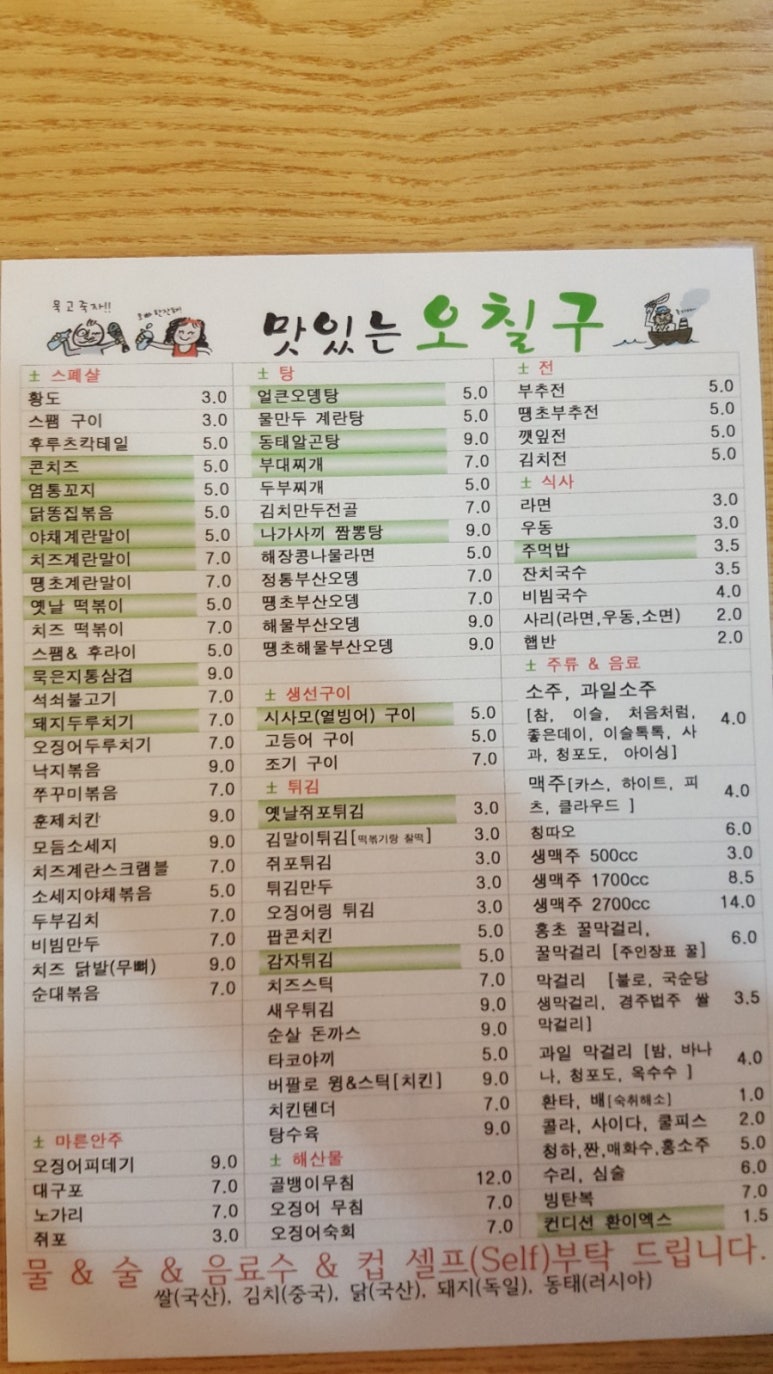 묵고죽자!!
맛있는 오칠구
± 스폐샬
황도 3.0
스팸 구이 3.0
후루츠칵테일 5.0
콘치즈 5.0
염통꼬지 5.0
닭똥집볶음 5.0
야채계란말이 5.0
치즈계란말이 7.0
땡초계란말이 7.0
옛날 떡볶이 5.0
치즈 떡볶이 7.0
스팸& 후라이 5.0
묵은지통삼겹 9.0
석쇠불고기 7.0
돼지두루치기 7.0
오징어두루치기 7.0
낙지볶음 9.0
쭈꾸미볶음 7.0
훈제치킨 9.0
모듬소세지 9.0
치즈계란스크램블 7.0
소세지야채볶음 5.0
두부김치 7.0
비빔만두 7.0
치즈 닭발(무뼈) 9.0
순대볶음 7.0
± 마른안주
오징어피데기 9.0
대구포 7.0
노가리 7.0
쥐포 3.0
± 탕
얼큰오뎅탕 5.0
물만두 계란탕 5.0
동태알곤탕 9.0
부대찌개 7.0
두부찌개 5.0
김치만두전골 7.0
나가사끼 짬뽕탕 9.0
해장콩나물라면 5.0
정통부산오뎅 7.0
땡초부산오뎅 7.0
해물부산오뎅 9.0
땡초해물부산오뎅 9.0
± 생선구이
시사모(열빙어) 구이 5.0
고등어 구이 5.0
조기 구이 7.0
± 튀김
옛날쥐포튀김 3.0
김말이튀김[떡볶기랑 찰떡] 3.0
쥐포튀김 3.0
튀김만두 3.0
오징어링 튀김 3.0
팝콘치킨 5.0
감자튀김 5.0
치즈스틱 7.0
새우튀김 9.0
순살 돈까스 9.0
타코야끼 5.0
버팔로 윙&스틱[치킨] 9.0
치킨텐더 7.0
탕수육 9.0
± 해산물
골뱅이무침 12.0
오징어 무침 7.0
오징어숙회 7.0
± 전
부추전 5.0
땡초부추전 5.0
깻잎전 5.0
김치전 5.0
± 식사
라면 3.0
우동 3.0
주먹밥 3.5
잔치국수 3.5
비빔국수 4.0
사리(라면,우동,소면) 2.0
햅반 2.0
± 주류 & 음료
소주, 과일소주
[참, 이슬, 처음처럼,
좋은데이, 이슬톡톡, 사 4.0
과, 청포도, 아이싱]
맥주[카스, 하이트, 피
츠, 클라우드 ] 4.0
칭따오 6.0
생맥주 500cc 3.0
생맥주 1700cc 8.5
생맥주 2700cc 14.0
홍초 꿀막걸리,
꿀막걸리 [주인장표 꿀] 6.0
막걸리 [불로, 국순당
생막걸리, 경주법주 쌀 3.5
막걸리]
과일 막걸리 [밤, 바나
나, 청포도, 옥수수 ] 4.0
환타, 배[숙취해소] 1.0
콜라, 사이다, 쿨피스 2.0
청하,짠,매화수,홍소주 5.0
수리, 심술 6.0
빙탄복 7.0
컨디션 환이엑스 1.5
물 & 술 & 음료수 & 컵 셀프(Self)부탁 드립니다.
쌀(국산), 김치(중국), 닭(국산), 돼지(독일), 동태(러시아)